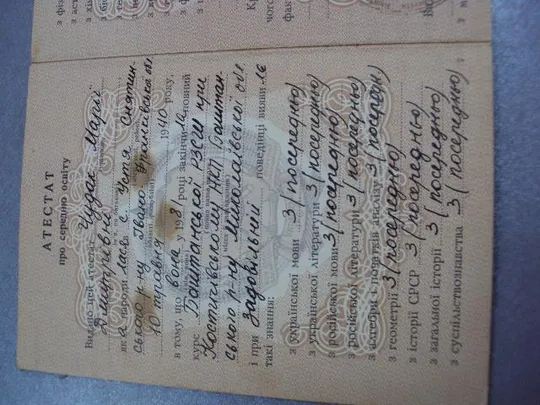 АТЕСТАТ
про середню освіту
Видано цей атестат Чудак Марії
Дмитрівні
яка народилася с. Устя Снятин-
ського р-ну Івано-Франківської обл.
10 травня 1940 року,
в тому, що вона у 1981 році закінчила повний
курс Баштанської РЗСШ при
Костичівському НКП Баштан-
ського р-ну Миколаївської обл
і при задовільній поведінці виявила
такі знання:
з української мови 3/посередньо/
з української літератури 3/посередньо/
з російської мови 3/посередньо/
російської літератури 3/посередньо/
з алгебри і початків аналізу 3/посередн/
з геометрії 3/посередньо/
з історії СРСР 3/посередньо/
з загальної історії 3/посередньо/
з суспільствознавства 3/посередньо/